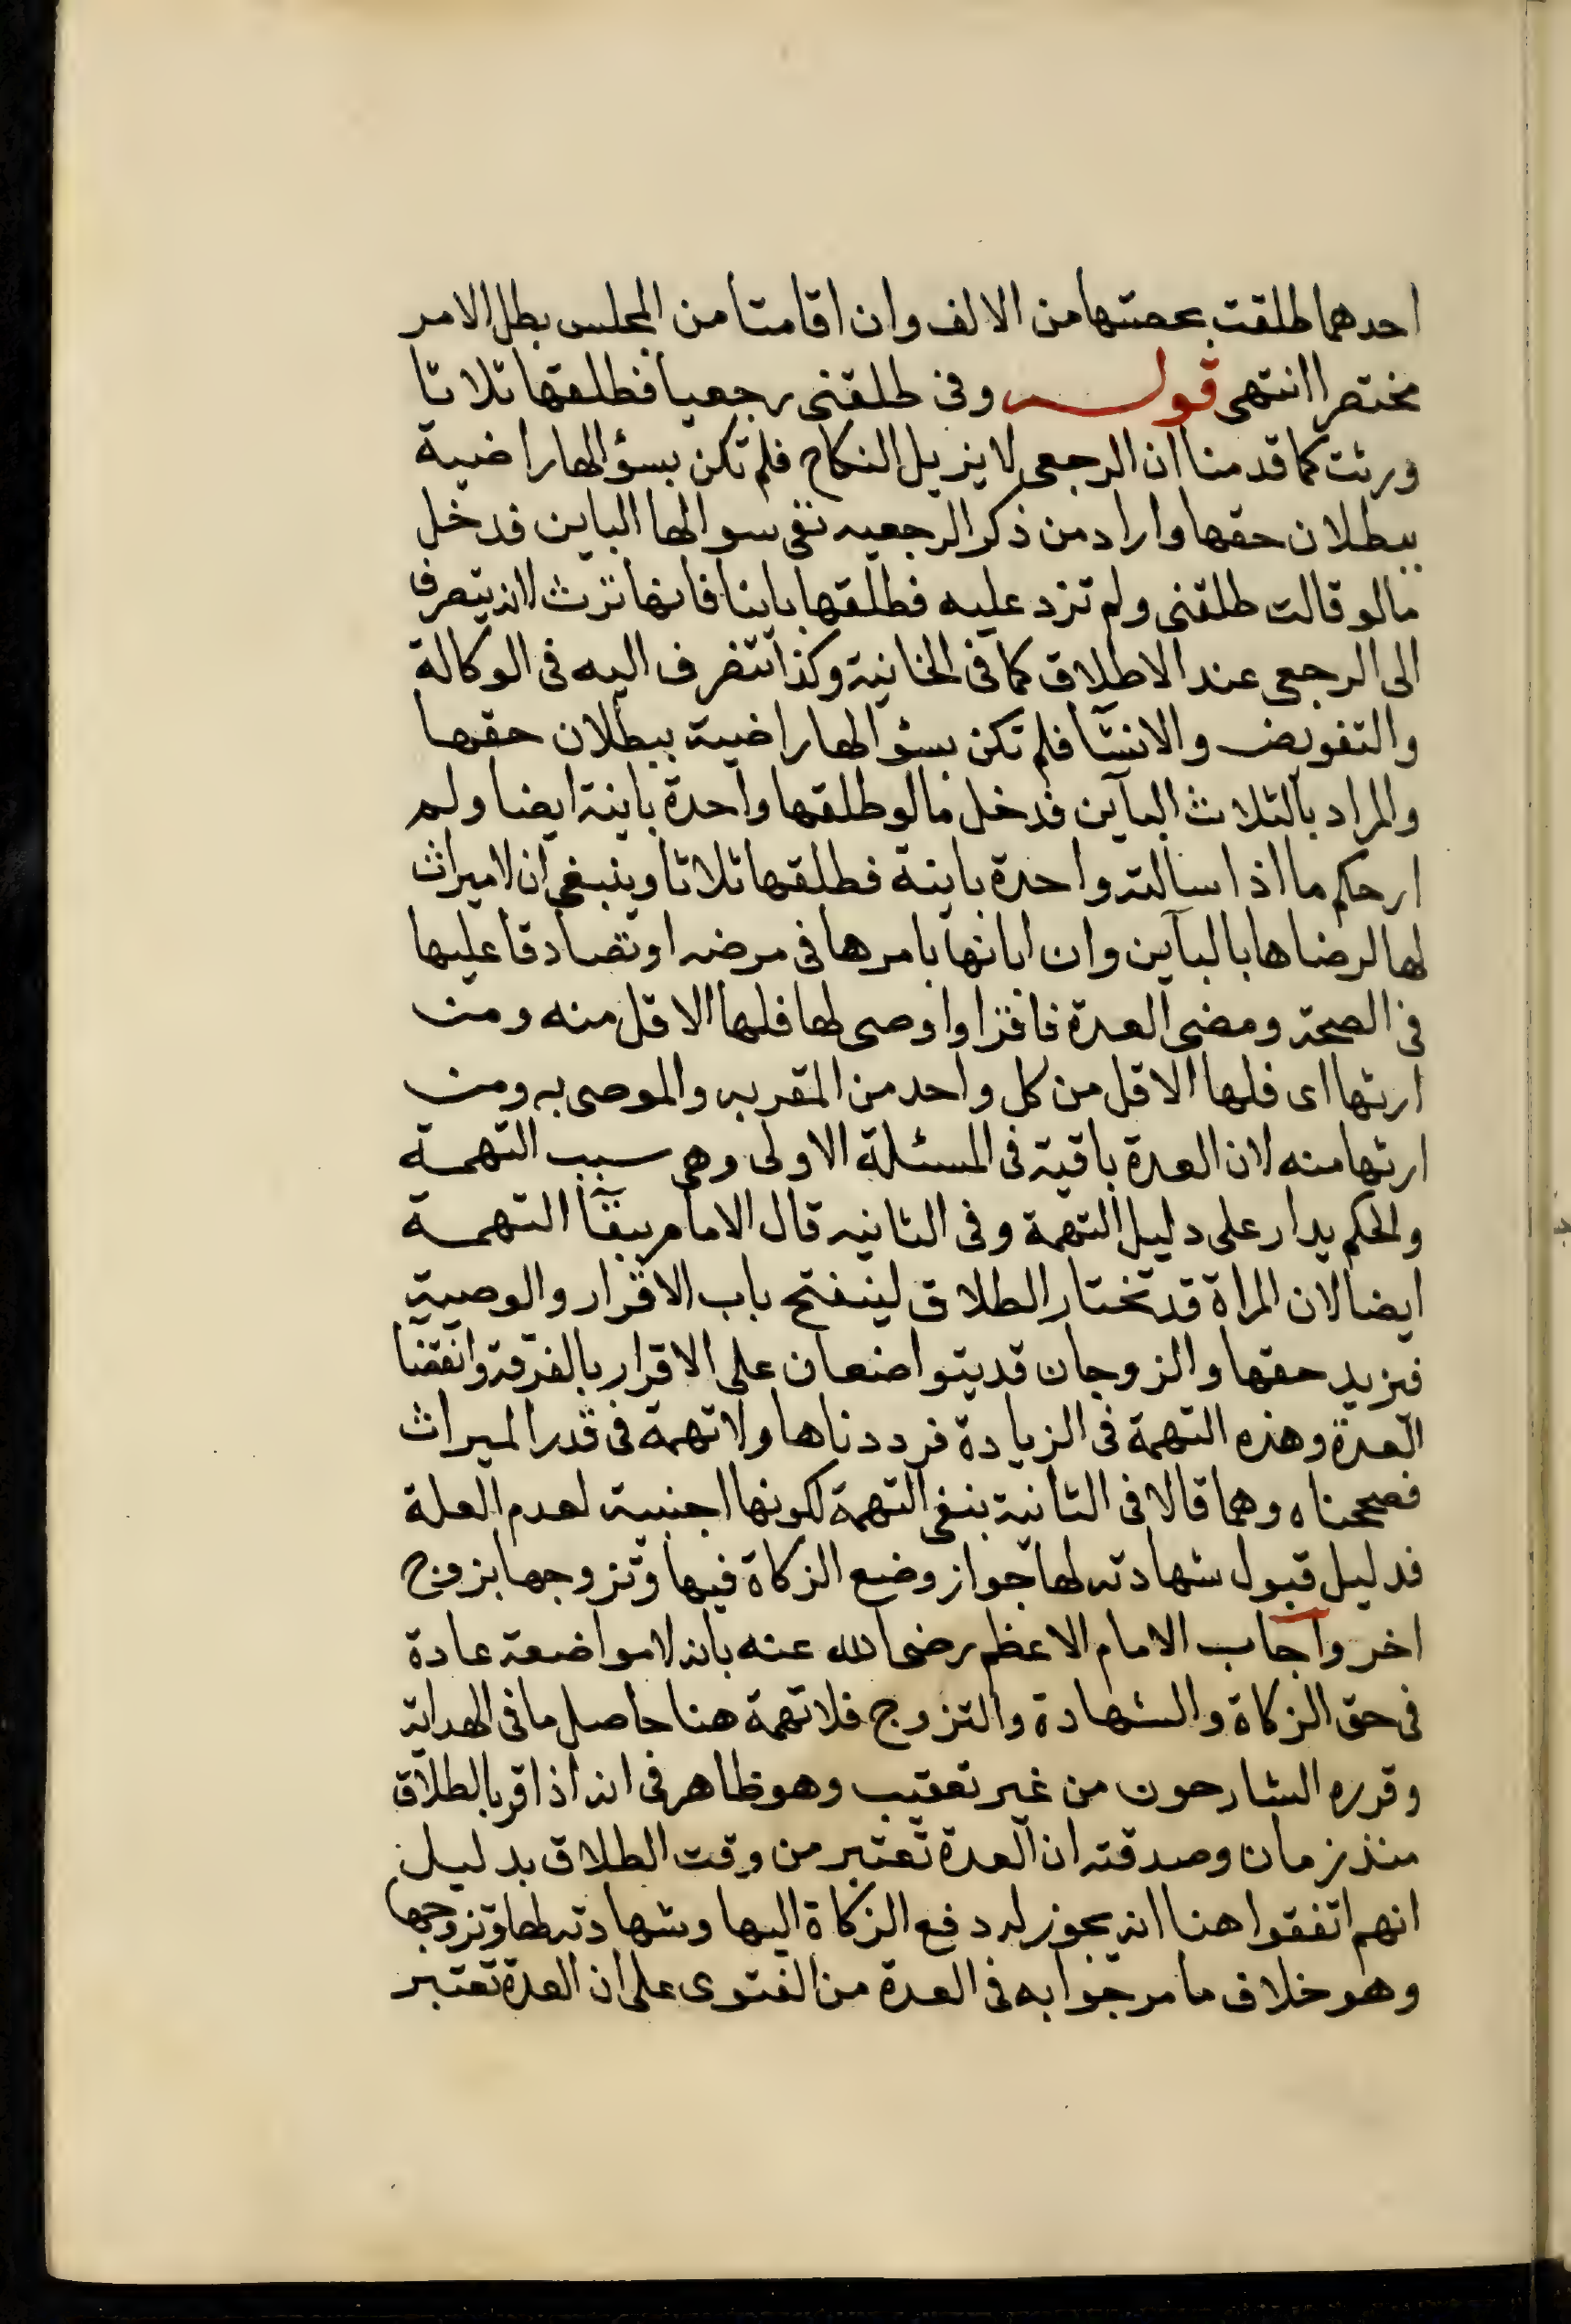 احدهما طلقت بحصتها من الالف وان اقامتا من المجلس بطل الامر
مختصرا انتهى قوله وفى طلقنى رجعيا فطلقها ثلاثا
ورثت كما قدمنا ان الرجعى لا يزيل النكاح فلم تكن بسؤالها راضية
ببطلان حقها واراد من ذكر الرجعيه نفى سوالها الباين فدخل
مالو قالت طلقنى ولم تزد عليه فطلقها باينا فانها ترث لانه يتصرف
الى الرجعى عند الاطلاق كما فى الخانية وكذا تنصرف اليه فى الوكالة
والتفويض والانشآ فلم تكن بسؤالها راضية ببطلان حقها
والمراد بالثلاث البآين فدخل مالو طلقها واحدة باينة ايضا ولم
ار حكم ما اذا سالته واحدة باينة فطلقها ثلاثا وينبغى ان لا ميراث
لها لرضاها بالبآين وان ابانها بامرها فى مرضه او تصادقا عليها
فى الصحة ومضى العدة فاقر او اوصى لها فلها الاقل منه ومن
ارثها اى فلها الاقل من كل واحد من المقر به والموصى به ومن
ارثها منه لان العدة باقية فى المسئلة الاولى وهى سبب التهمة
والحكم يدار على دليل التهمة وفى الثانيه قال الامام ببقآ التهمة
ايضا لان المراة قد تختار الطلاق لينفتح باب الاقرار والوصية
فيزيد حقها والزوجان قد يتواضعان على الاقرار بالفرقة وانقضا
العدة وهذه التهمة فى الزيادة فرددناها ولا تهمة فى قدر الميراث
فصححناه وهما قالا فى الثانية بنفى التهمة لكونها اجنبية لعدم العلة
فدليل قبول شهادته لها جواز وضع الزكاة فيها وتزوجها بزوج
اخر واجاب الامام الاعظم رضى الله عنه بانه لا مواضعة عادة
فى حق الزكاة والشهادة والتزوج فلا تهمة هنا حاصل ما فى الهداية
وقرره الشارحون من غير تعقيب وهو ظاهر فى انه اذا اقر بالطلاق
منذ زمان وصدقته ان العدة تعتبر من وقت الطلاق بدليل
انهم اتفقوا هنا انه يجوز له دفع الزكاة اليها وشهادته لها وتزوجها
وهو خلاف ما مر جوابه فى العدة من الفتوى على ان العدة تعتبر